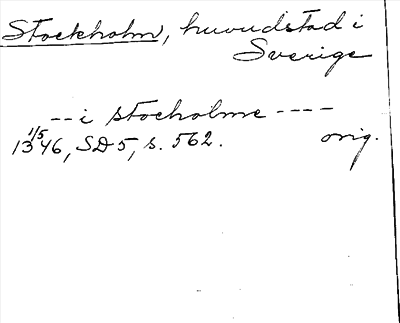 Stockholm, huvudstad i
Sverige
-- i stocholme ----
1/5
1346, SD 5, s. 562. orig.